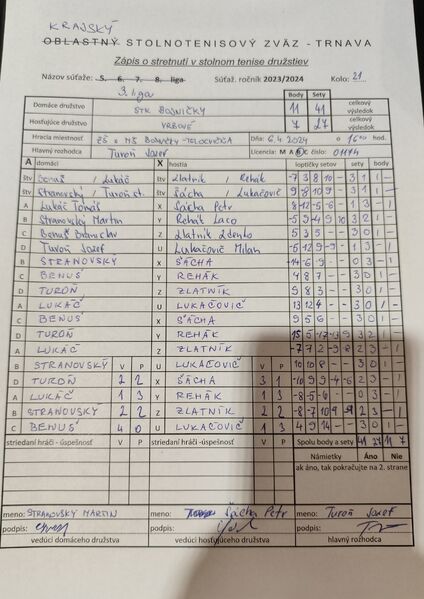 KRAJSKÝ
OBLASTNÝ STOLNOTENISOVÝ ZVÄZ - TRNAVA
Zápis o stretnutí v stolnom tenise družstiev
Názov súťaže: 5. 6. 7. 8. liga Súťaž. ročník 2023/2024 Kolo: 21
3. liga Body Sety
Domáce družstvo STK BOJNIČKY 11 41 celkový výsledok
Hosťujúce družstvo VRBOVÉ 7 27 celkový výsledok
Hracia miestnosť ZŠ s MŠ BOJNIČKY-TELOCVIČŇA Dňa: 6.4.2024 o 16 hod
Hlavný rozhodca Turoň Jozef Licencia: M A B C číslo: 01174
A domáci X hostia loptičky setov sety body
štv Benuš / Lukáč štv Zlatník / Rehák -7 3 8 10 - 3 1 1 -
štv Stranovský / Turoň štv Šácha / Lukačovič 9 8 10 9 - 3 1 1 -
A Lukáč Tomáš X Šácha Petr 8 -12 -5 -6 - 1 3 - 1
B Stranovský Martin Y Rehák Laco -5 9 -4 9 10 3 2 1 -
C Benuš Branislav Z Zlatník Zdenko 5 3 5 - - 3 0 1 -
D Turoň Jozef U Lukačovič Milan -6 -12 9 -9 - 1 3 - 1
B STRANOVSKÝ X ŠÁCHA -14 -6 -9 - - 0 3 - 1
C BENUŠ Y REHÁK 4 8 7 - - 3 0 1 -
D TUROŇ Z ZLATNÍK 9 8 3 - - 3 0 1 -
A LUKÁČ U LUKAČOVIČ 13 12 4 - - 3 0 1 -
C BENUŠ X ŠÁCHA 9 5 6 - - 3 0 1 -
D TUROŇ Y REHÁK 3 2 1 -
A LUKÁČ Z ZLATNÍK -7 7 2 -9 8 3 2 1 -
B STRANOVSKÝ V P U LUKAČOVIČ V P 10 10 8 - - 3 0 1 -
D TUROŇ 2 2 X ŠÁCHA 3 1 -10 9 9 -4 -6 2 3 - 1
A LUKÁČ 1 3 Y REHÁK 1 3 -8 -5 -6 - - 0 3 - 1
B STRANOVSKÝ 2 2 Z ZLATNÍK 2 2 2 3 - 1
C BENUŠ 4 0 U LUKAČOVIČ 1 3 4 9 14 - - 3 0 1 -
striedaní hráči -úspešnosť V P striedaní hráči -úspešnosť V P Spolu body a sety 41 27 11 7
Námietky Áno Nie
ak áno, tak pokračujte na 2. strane
meno: STRANOVSKÝ MARTIN meno: Šácha Petr meno: Turoň Jozef
podpis: podpis: podpis:
vedúci domáceho družstva vedúci hosťujúceho družstva hlavný rozhodca